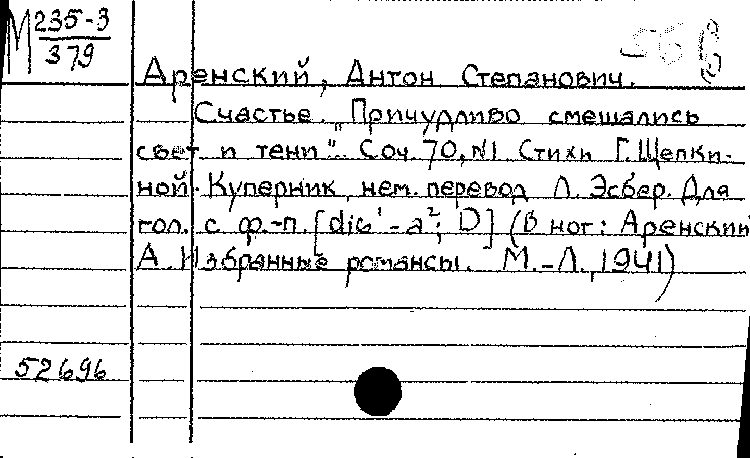 М 235-3
379
Аренский, Антон Степанович.
Счастье. „Причудливо смешались
свет и тени". Соч. 70, №1 Стихи Г. Щепки-
ной-Куперник, нем. перевод Л. Эсбер. Для
гол. с ф.-п. [dis¹-a²; D] (В ног: Аренский
А. Избранные романсы. М.-Л., 1941)
52696